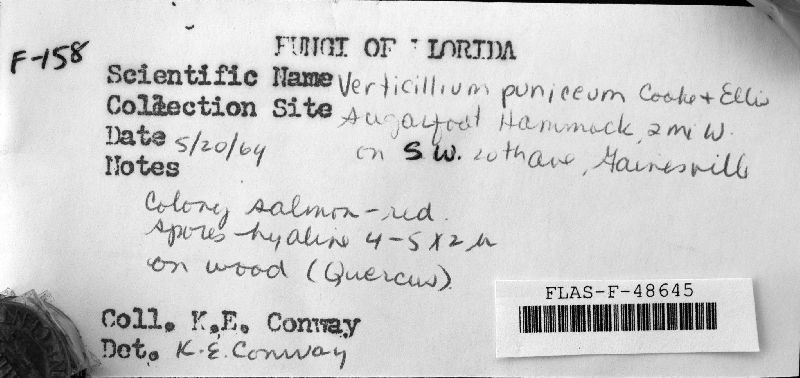 F-158
FUNGI OF FLORIDA
Scientific Name Verticillium puniceum Cooke + Ellis
Collection Site Sugarfoot Hammock, 2 mi W.
Date 5/20/64 on S.W. 20th ave, Gainesville
Notes
Colony salmon-red.
spores-hyaline 4-5 X 2 µ
on wood (Quercus).
FLAS-F-48645
Coll. K.E. Conway
Det. K.E. Conway